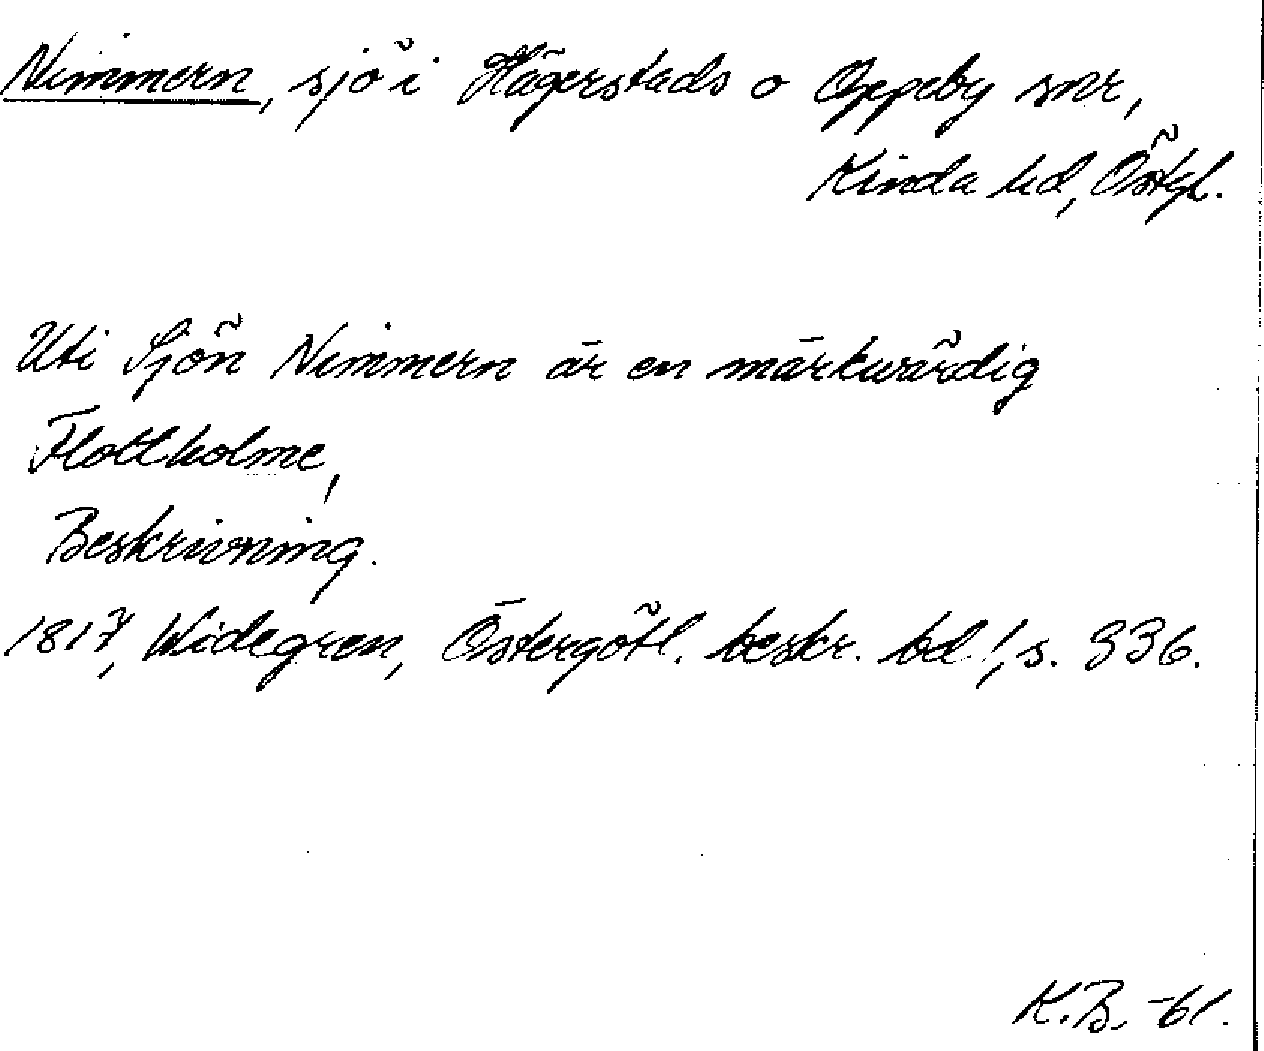 Nimmern, sjö i Hägerstads o Oppeby snr,
Kinda hd, Östgl.
Uti Sjön Nimmern är en märkwärdig
Flottholme,
Beskrivning.
1817, Widegren, Östergötl. beskr. bd 1, s. 336.
K.B. -61.